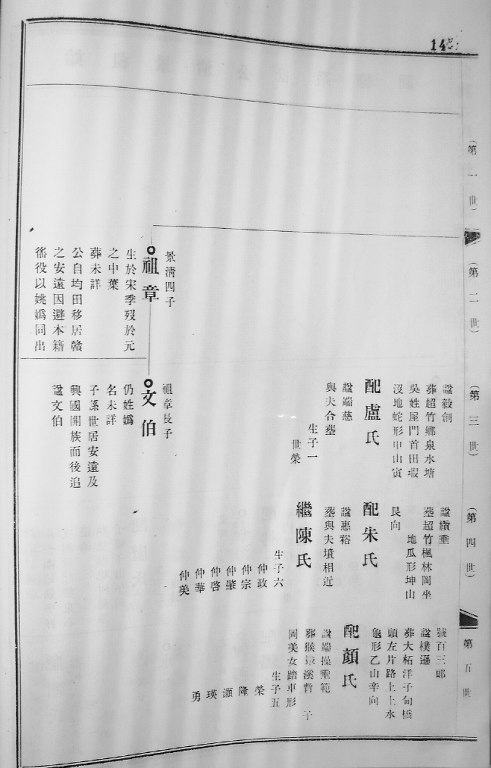 (第一世)
(第二世)
(第三世)
(第四世)
第五世
景清四子
祖章
生於宋季歿於元
之中葉
葬未詳
公自均田移居贛
之安遠因避本籍
徭役以姚嬀同出
諡毅創
葬超竹鄉泉水塘
吳姓屋門首田塅
沒地蛇形申山寅
配盧氏
諡端慈
與夫合墓
生子一
世榮
祖章長子
文伯
仍姓嬀
名未詳
子孫世居安遠及
興國開族而後追
諡文伯
諡纘垂
墓超竹楓林岡坐
地瓜形坤山
艮向
配朱氏
諡惠裕
墓與夫墳相近
繼陳氏
生子六
仲政
仲宗
仲肇
仲啓
仲華
仲美
號百三郎
諡樸遜
葬大柘洋子甸橋
頭左片路上上水
龜形乙山辛向
配顏氏
諡端操垂範
岡美女踏車形
生子五
榮
隆
源
瑛
勇